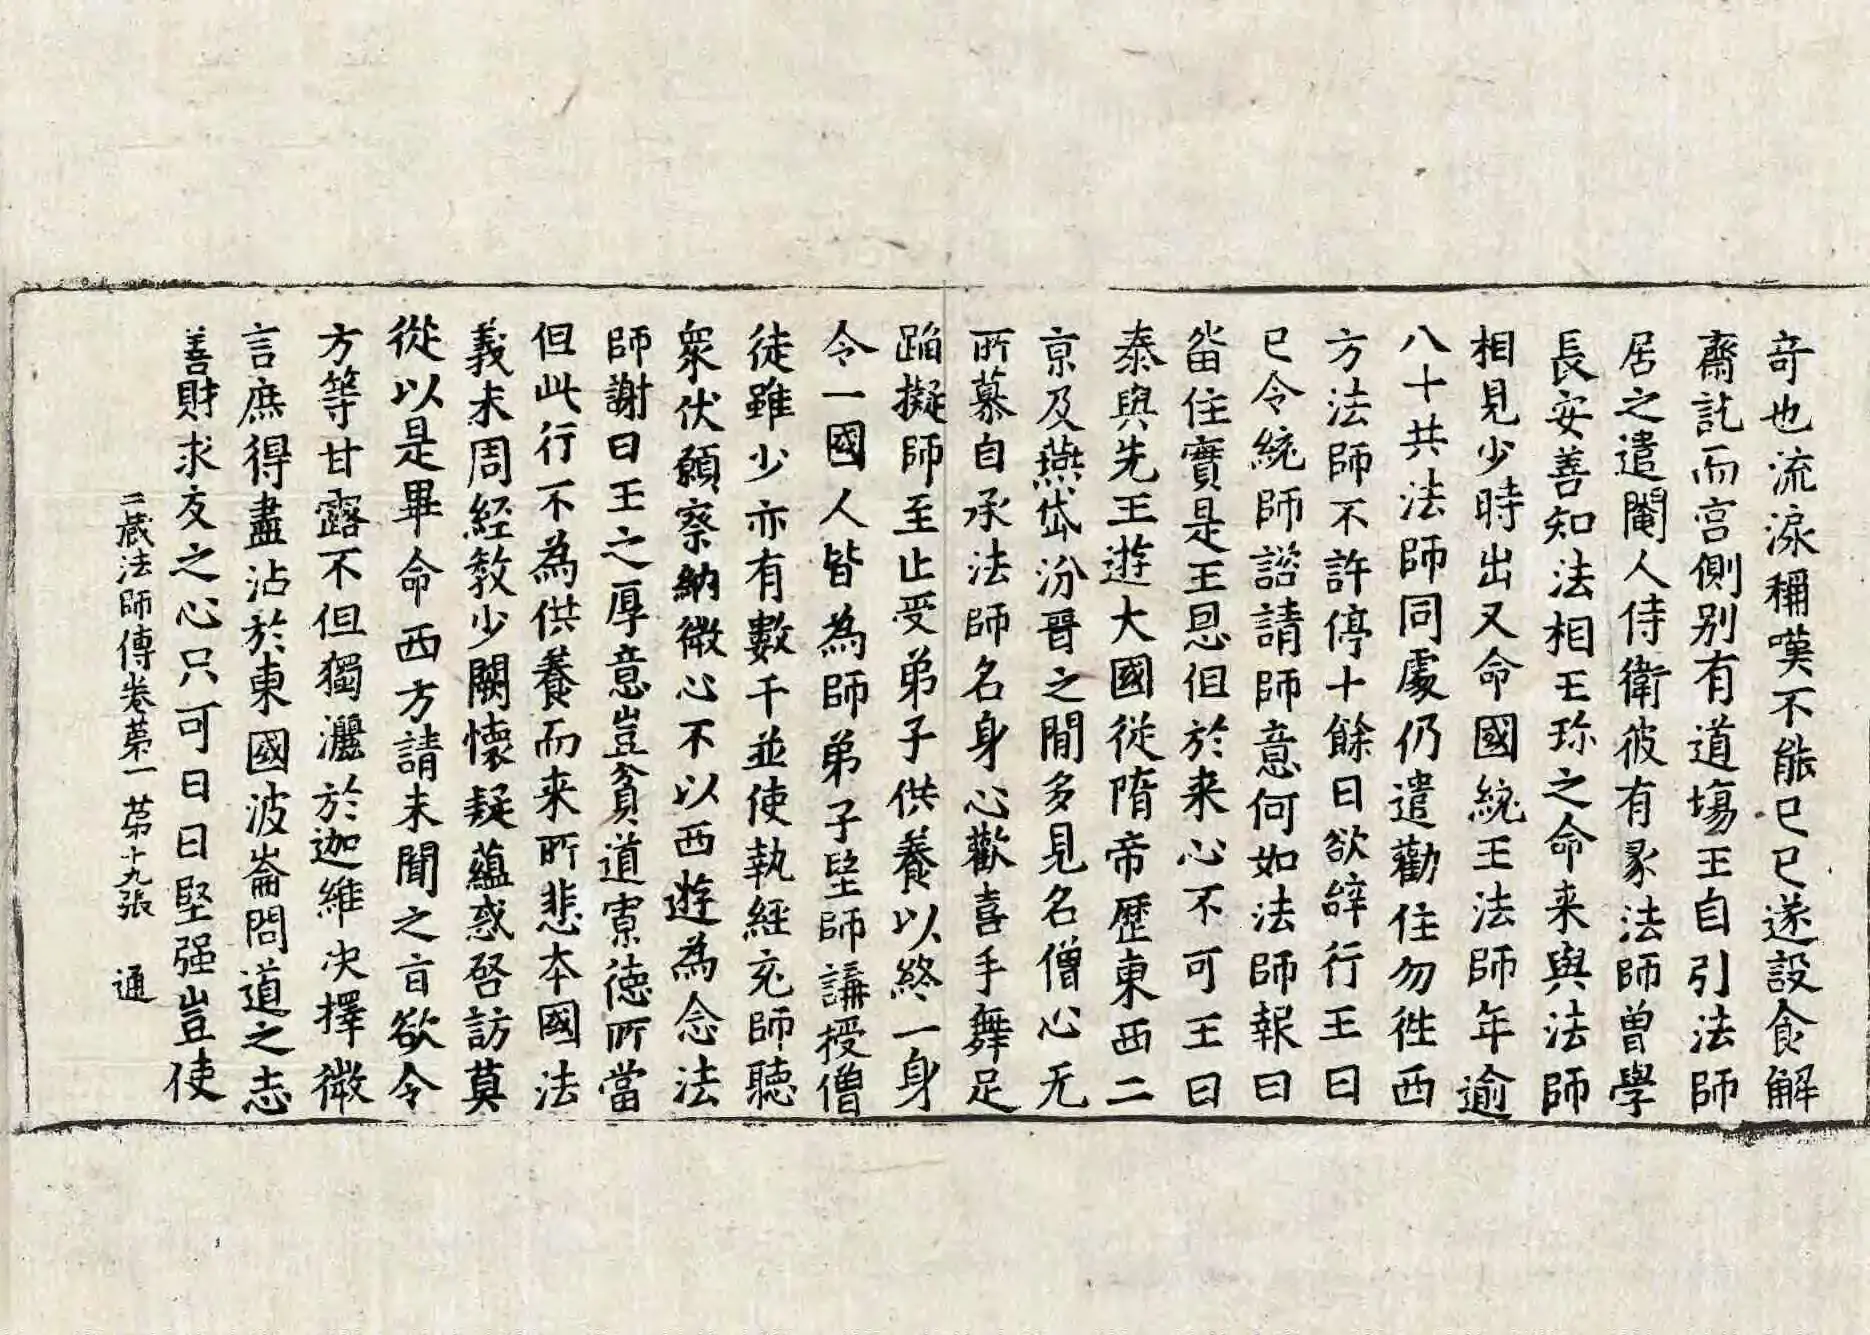 奇也流淚稱嘆不能已已遂設食解
齋訖而宮側別有道場王自引法師
居之遣閹人侍衛彼有彖法師曾學
長安善知法相王珎之命来與法師
相見少時出又命國統王法師年逾
八十共法師同處仍遣勸住勿徃西
方法師不許停十餘日欲辝行王曰
已令統師諮請師意何如法師報曰
畱住實是王恩但於来心不可王曰
泰與先王遊大國從隋帝歷東西二
亰及燕岱汾晉之間多見名僧心无
所慕自承法師名身心歡喜手舞足
蹈擬師至止受弟子供養以終一身
令一國人皆為師弟子望師講授僧
徒雖少亦有數千並使執經充師聽
衆伏願察納微心不以西遊為念法
師謝曰王之厚意豈貧道寡徳所當
但此行不為供養而来所悲本國法
義未周經教少闕懷疑蘊惑啓訪莫
從以是畢命西方請未聞之旨欲令
方等甘露不但獨灑於迦維決擇微
言庶得盡沾於東國波崙問道之志
善財求友之心只可日日堅强豈使
三蔵法師傳卷苐一 苐十九張 通